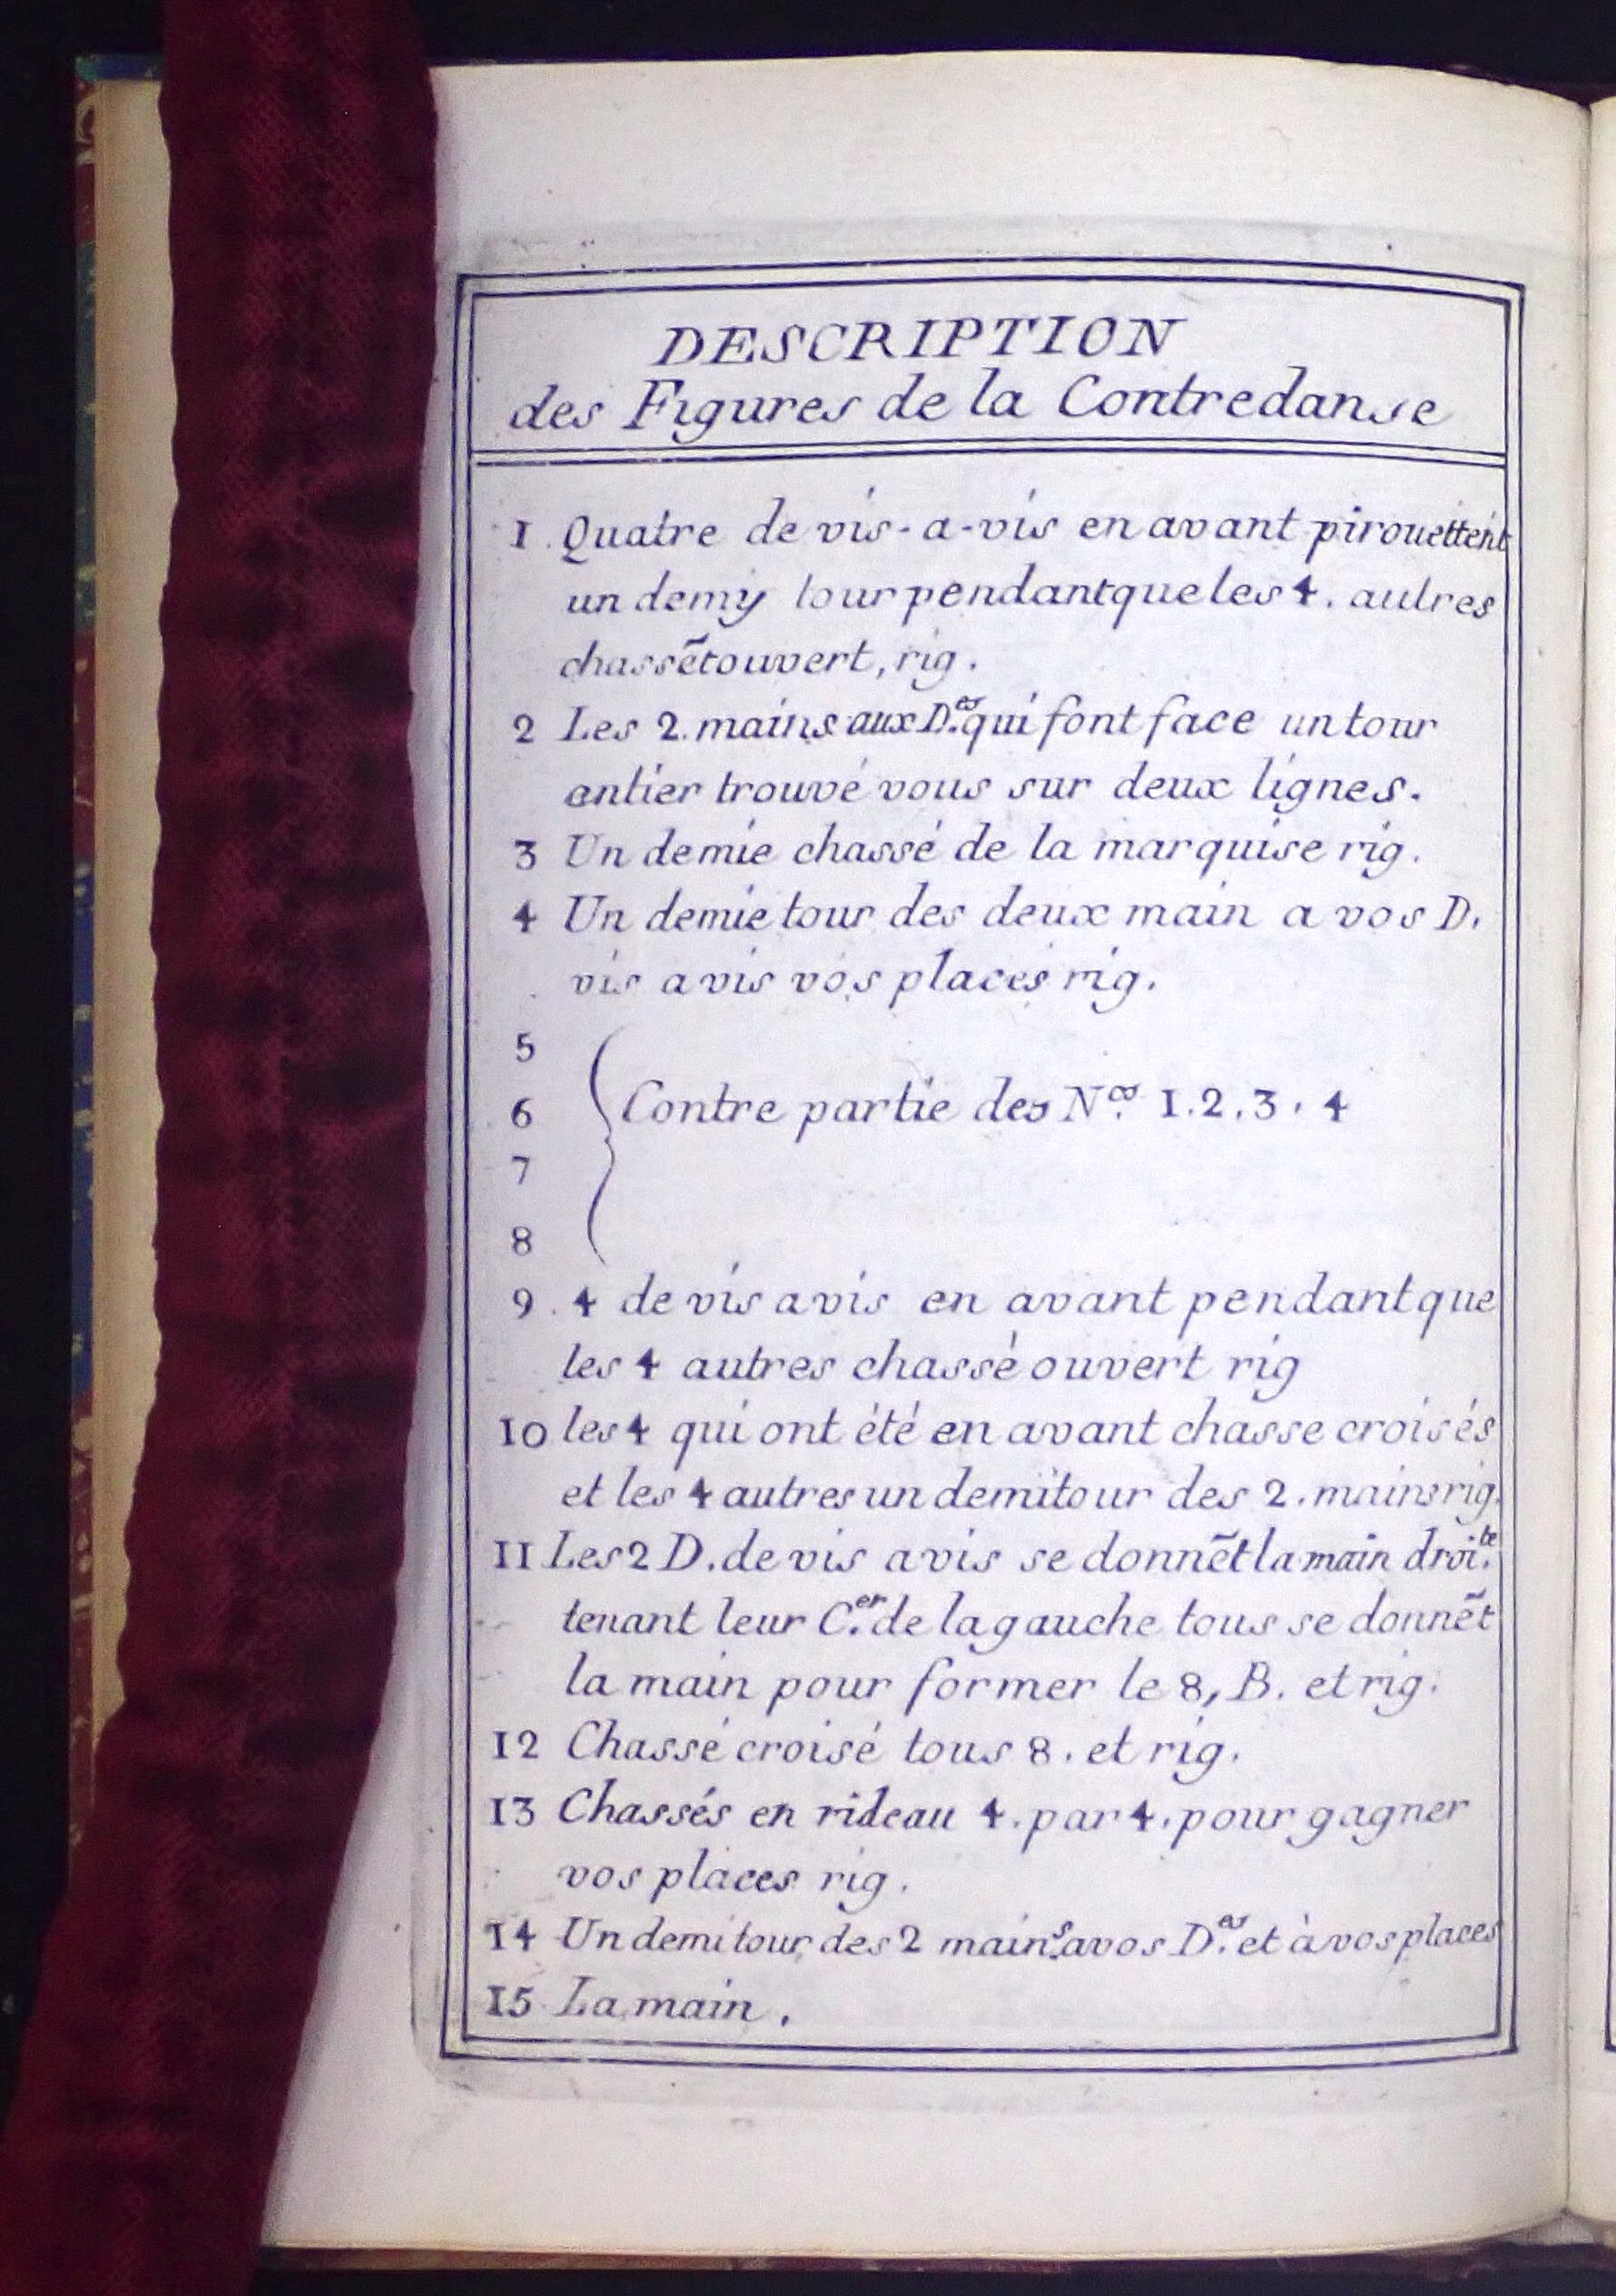 DESCRIPTION
des Figures de la Contredanse
1 Quatre de vis-a-vis en avant pirouettent
un demy tour pendant que les 4. autres
chassẽt ouvert, rig.
2 Les 2. mains aux D.es qui font face un tour
entier trouvé vous sur deux lignes.
3 Un demie chassé de la marquise rig.
4 Un demie tour des deux main a vos D.
vis a vis vos places rig.
5
6 Contre partie des N.os 1. 2. 3. 4
7
8
9. 4 de vis a vis en avant pendant que
les 4 autres chassé ouvert rig
10 les 4 qui ont été en avant chasse croisés
et les 4 autres un demi tour des 2. mains rig.
11 Les 2 D. de vis a vis se donnẽt la main droi.te
tenant leur C.er de la gauche tous se donnẽt
la main pour former le 8, B. et rig.
12 Chassé croisé tous 8. et rig.
13 Chassés en rideau 4. par 4. pour gagner
vos places rig.
14 Un demi tour des 2 mains a vos D.es et à vos places
15 La main.